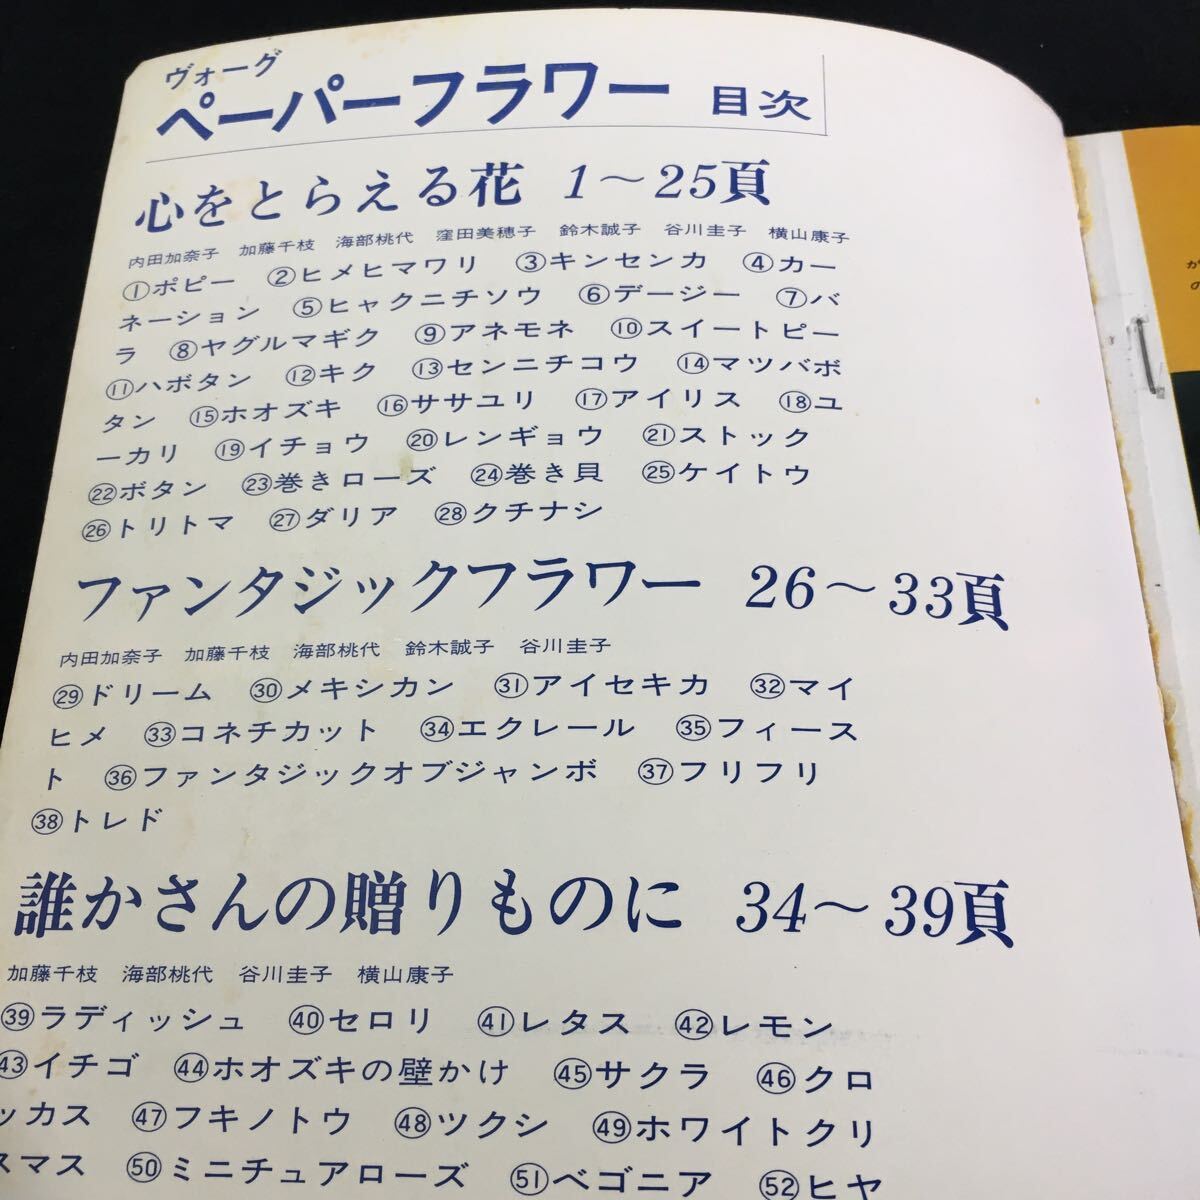 ヴォーグ
ペーパーフラワー 目次
心をとらえる花 1～25頁
内田加奈子 加藤千枝 海部桃代 窪田美穂子 鈴木誠子 谷川圭子 横山康子
①ポピー ②ヒメヒマワリ ③キンセンカ ④カー
ネーション ⑤ヒャクニチソウ ⑥デージー ⑦バ
ラ ⑧ヤグルマギク ⑨アネモネ ⑩スイートピー
⑪ハボタン ⑫キク ⑬センニチコウ ⑭マツバボ
タン ⑮ホオズキ ⑯ササユリ ⑰アイリス ⑱ユ
ーカリ ⑲イチョウ ⑳レンギョウ ㉑ストック
㉒ボタン ㉓巻きローズ ㉔巻き貝 ㉕ケイトウ
㉖トリトマ ㉗ダリア ㉘クチナシ
ファンタジックフラワー 26～33頁
内田加奈子 加藤千枝 海部桃代 鈴木誠子 谷川圭子
㉙ドリーム ㉚メキシカン ㉛アイセキカ ㉜マイ
ヒメ ㉝コネチカット ㉞エクレール ㉟フィース
ト ㊱ファンタジックオブジャンボ ㊲フリフリ
㊳トレド
誰かさんの贈りものに 34～39頁
加藤千枝 海部桃代 谷川圭子 横山康子
㊴ラディッシュ ㊵セロリ ㊶レタス ㊷レモン
㊸イチゴ ㊹ホオズキの壁かけ ㊺サクラ ㊻クロ
ッカス ㊼フキノトウ ㊽ツクシ ㊾ホワイトクリ
スマス ㊿ミニチュアローズ 51ベゴニア 52ヒヤ
か
の